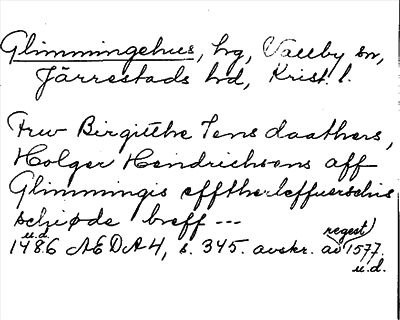 Glimmingehus, hrg, Vallby sn,
Järrestads hd, Krist. l.
Frw Birgitthe Jens daathers,
Holger Hendrichsens aff
Glimmingis efftherleffuerschis
schiøde breff ---
u.d. regest)
1486 ÆDA 4, s. 345. avskr. av 1577.
u.d.